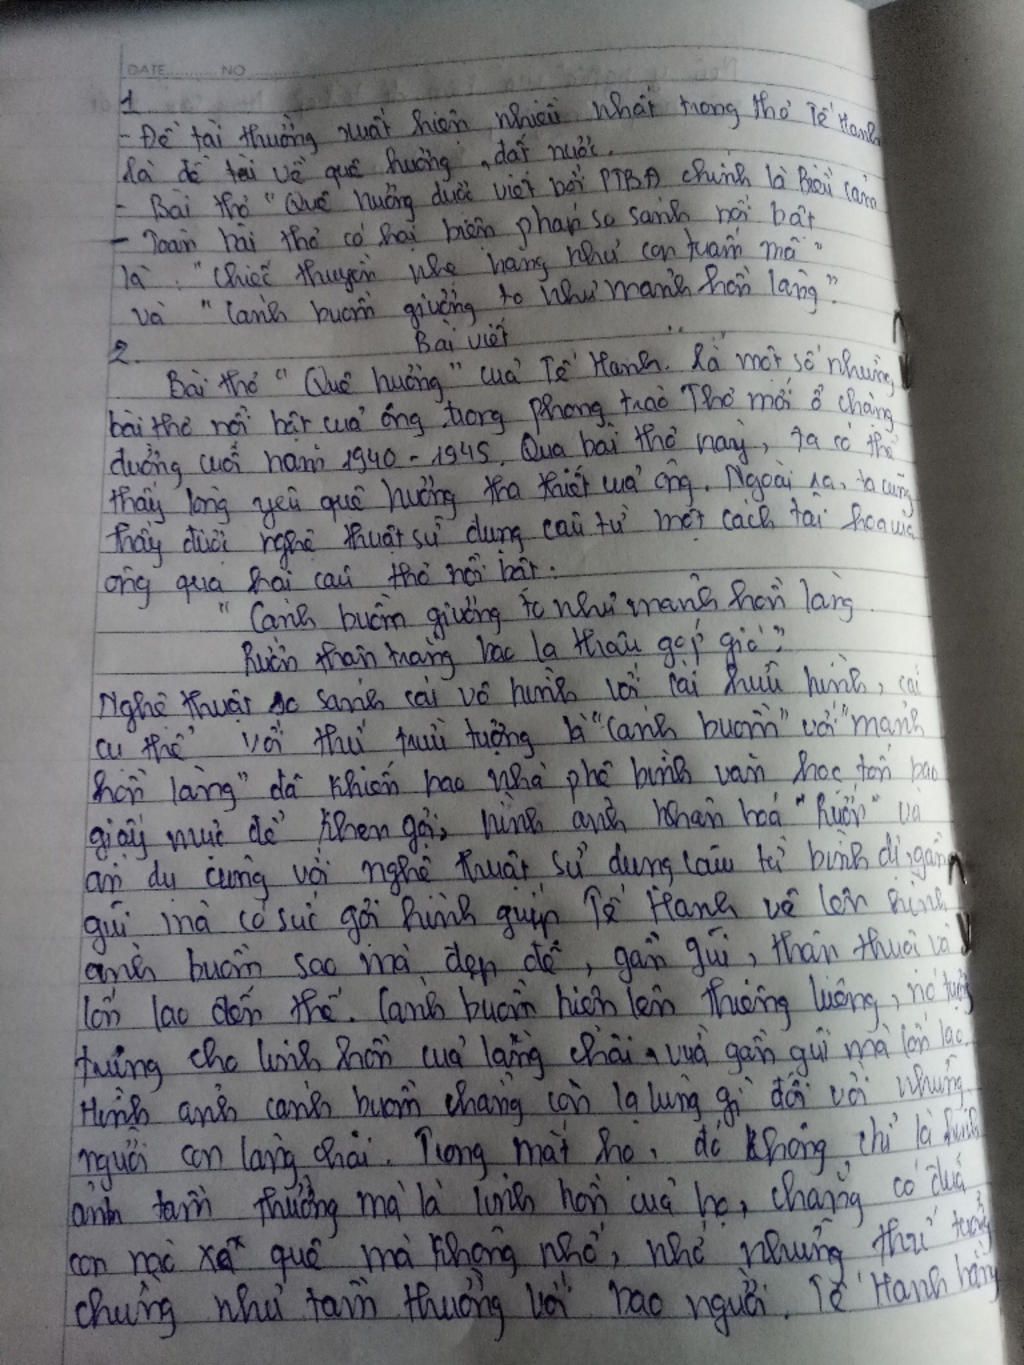 DATE............ NO............
1
- Đề tài thường xuất hiện nhiều nhất trong thơ Tế Hanh
là đề tài về quê hương, đất nước.
- Bài thơ "Quê hương được viết bởi PTBĐ chính là Biểu cảm
- Toàn bài thơ có hai biện pháp so sánh nổi bật
là : "Chiếc thuyền nhẹ hăng như con tuấn mã"
và "Cánh buồm giương to như mảnh hồn làng".
Bài viết
2.
Bài thơ "Quê hương" của Tế Hanh. là một số những
bài thơ nổi bật của ông trong phong trào Thơ mới ở chặng
đường cuối năm 1940-1945. Qua bài thơ này, ta có thể
thấy lòng yêu quê hương tha thiết của ông. Ngoài ra, ta cũng
thấy được nghệ thuật sử dụng câu từ một cách tài hoa của
ông qua hai câu thơ nổi bật :
"Cánh buồm giương to như mảnh hồn làng.
Rướn thân trắng bao la thâu góp gió".
Nghệ thuật so sánh cái vô hình với cái hữu hình, cái
cụ thể với thứ trừu tượng là "cánh buồm" với "mảnh
hồn làng" đã khiến bao nhà phê bình văn học tốn bao
giấy mực để khen gợi, hình ảnh nhân hoá "Rướn" và
ẩn dụ cùng với nghệ thuật sử dụng câu từ bình dị, gần
gũi mà có sức gợi hình giúp Tế Hanh vẽ lên hình
ảnh buồm sao mà đẹp đẽ, gần gũi, thân thuộc và
lớn lao đến thế. Cánh buồm hiện lên thường luông, nó tượng
trưng cho linh hồn của làng chài, vừa gần gũi mà lớn lao.
Hình ảnh cánh buồm chẳng còn lạ lùng gì đối với những
người con làng chài. Trong mắt họ, đó không chỉ là hình
ảnh tầm thường mà là linh hồn của họ, chẳng có đứa
con nào xa quê mà không nhớ, nhớ những thứ tưởng
chừng như tầm thường với bao người. Tế Hanh hẳn